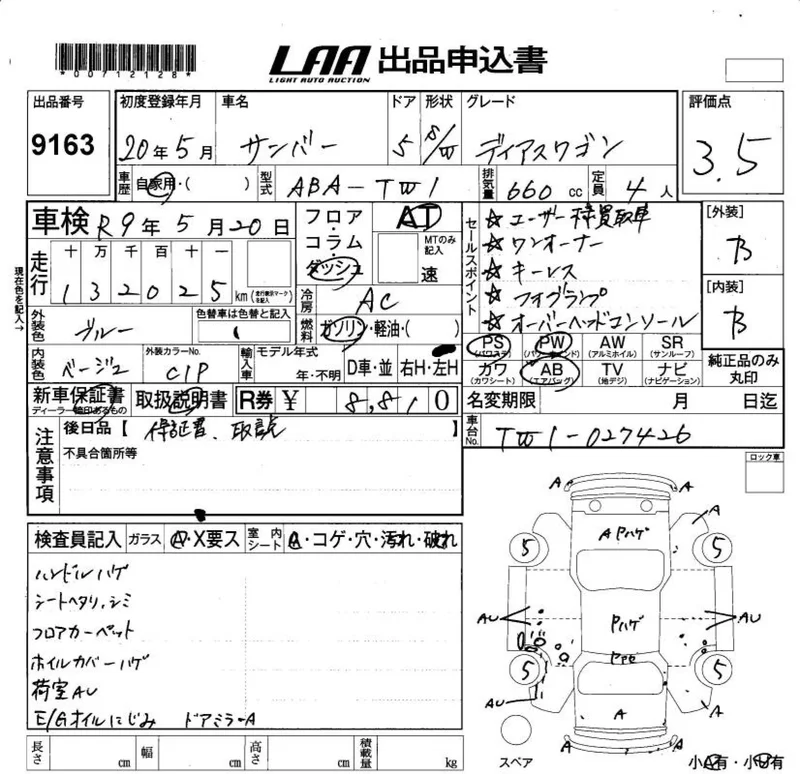 *00712128*
LAA 出品申込書
LIGHT AUTO AUCTION
出品番号 9163
初度登録年月 20年5月
車名 サンバー
ドア 5
形状 S/W
グレード ディアスワゴン
評価点 3.5
車歴 自家用・( )
型式 ABA-TW1
排気量 660 cc
定員 4人
車検 R9年5月20日
フロア・コラム・ダッシュ
AT
MTのみ記入 速
セールスポイント
☆ユーザー様買取車
☆ワンオーナー
☆キーレス
☆フォグランプ
☆オーバーヘッドコンソール
[外装] B
[内装] B
現在色を記入→
走行 十万千百十一
132025 km (走行表示マークを記入)
冷房 AC
燃料 ガソリン・軽油・( )
外装色 ブルー
色替車は色替と記入 (
内装色 ベージュ
外装カラーNo. C1P
輸入車 モデル年式 年・不明
D車・並 右H・左H
PS (パワステ) PW (パワーウインド) AW (アルミホイル) SR (サンルーフ)
カワ (カワシート) AB (エアバッグ) TV (地デジ) ナビ (ナビゲーション)
純正品のみ丸印
新車保証書 ディーラー捺印あるもの
取扱説明書
R券 ¥ 8,810
名変期限 月 日迄
車台No. TW1-027426
注意事項
後日品【 保証書、取説 】
不具合箇所等
ロック車
検査員記入
ガラス A・X要ス
室内シート A・コゲ・穴・汚れ・破れ
ハンドルハゲ
シートヘタリ、シミ
フロアカーペット
ホイルカバーハゲ
荷室AU
E/Gオイルにじみ ドアミラーA
A A
A
A Pハゲ
5 5
AU Pハゲ AU
5 5
AU A A
スペア
小A有・小U有
長さ cm 幅 cm 高さ cm 積載量 kg